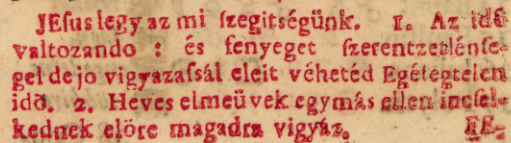 JEſus legy az mi ſzegitségünk. 1. Az idő
valtozando : és fenyeget ſzerentzetlénſe-
gel de jo vigyazaſsál eleit véhetéd Egésegtelen
idő. 2. Heves elmeüvek egymás ellen incſel-
kednek elöre magadra vigyáz.